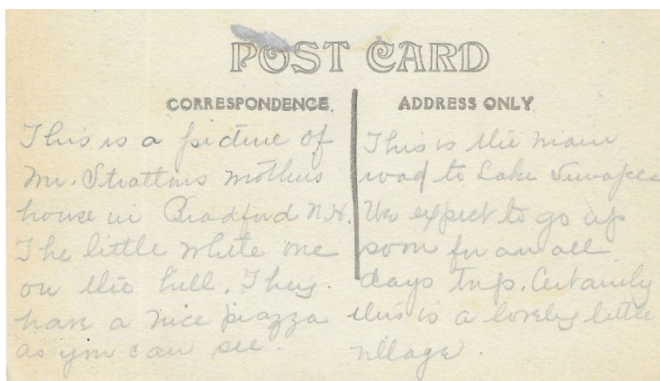 POST CARD
CORRESPONDENCE.
This is a picture of
Mr. Strattons mothers
house in Bradford N.H.
The little white one
on the hill. They.
have a nice piazza
as you can see.
ADDRESS ONLY
This is the main
road to Lake Sunapee
We expect to go up
soon for an all
days trip. Certainly
this is a lovely little
village.